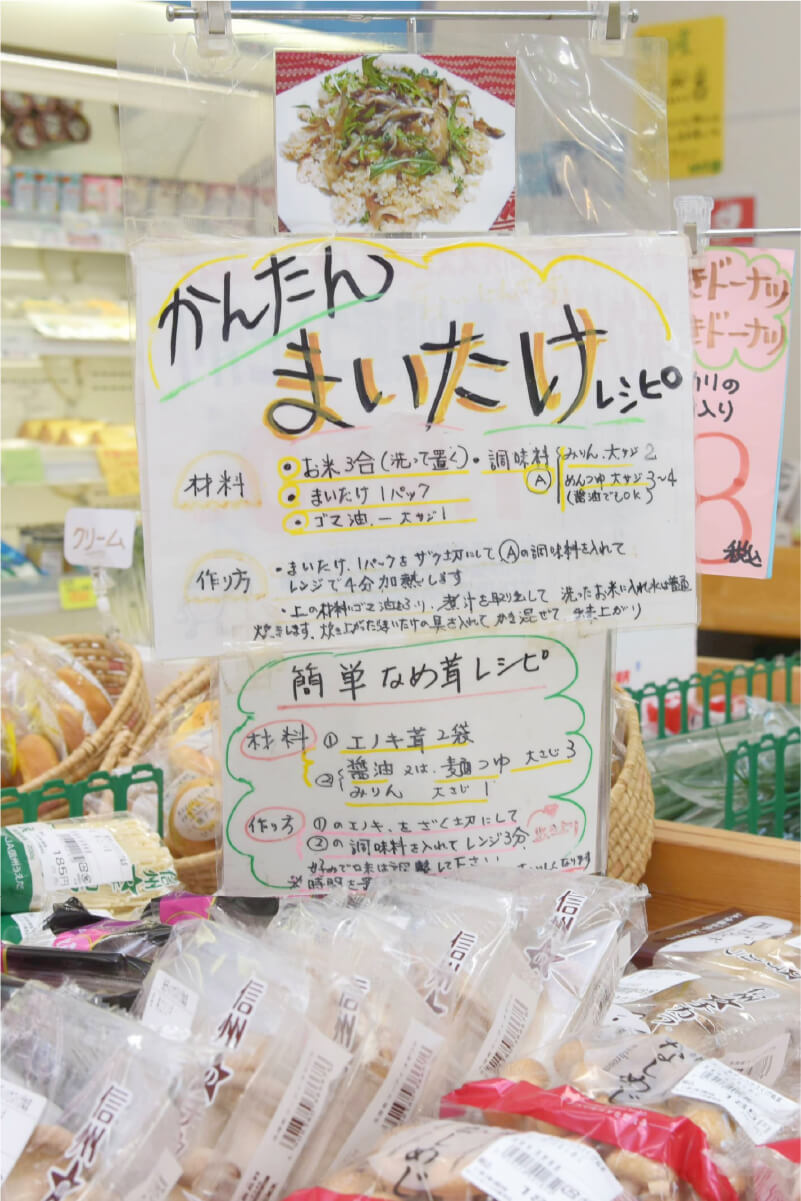 かんたん
まいたけレシピ
材料
・お米3合(洗って置く)・調味料
Ⓐ
みりん.大サジ2
めんつゆ 大サジ3〜4
(醤油でもOK)
・まいたけ 1パック
・ゴマ油.一大サジ1
作り方
・まいたけ、1パックをザク切にしてⒶの調味料を入れて
レンジで4分加熱します
・上の材料にゴマ油をふり、煮汁を取り出して 洗ったお米に入れ水は普通
炊きします。炊き上がたまいたけの具を入れてかき混ぜて 出来上がり
簡単なめ茸レシピ
材料
① エノキ茸2袋
② 醤油 又は、麺つゆ 大さじ3
みりん 大さじ1
作り方
①のエノキ、をざく切にして
②の調味料を入れてレンジ3分
好みで味は調整して下さい
※時間を
クリーム
きドーナツ
きドーナツ
カリの
入り
8
185
信州
信州
信州
信州
信州
なしめじ
しめじ